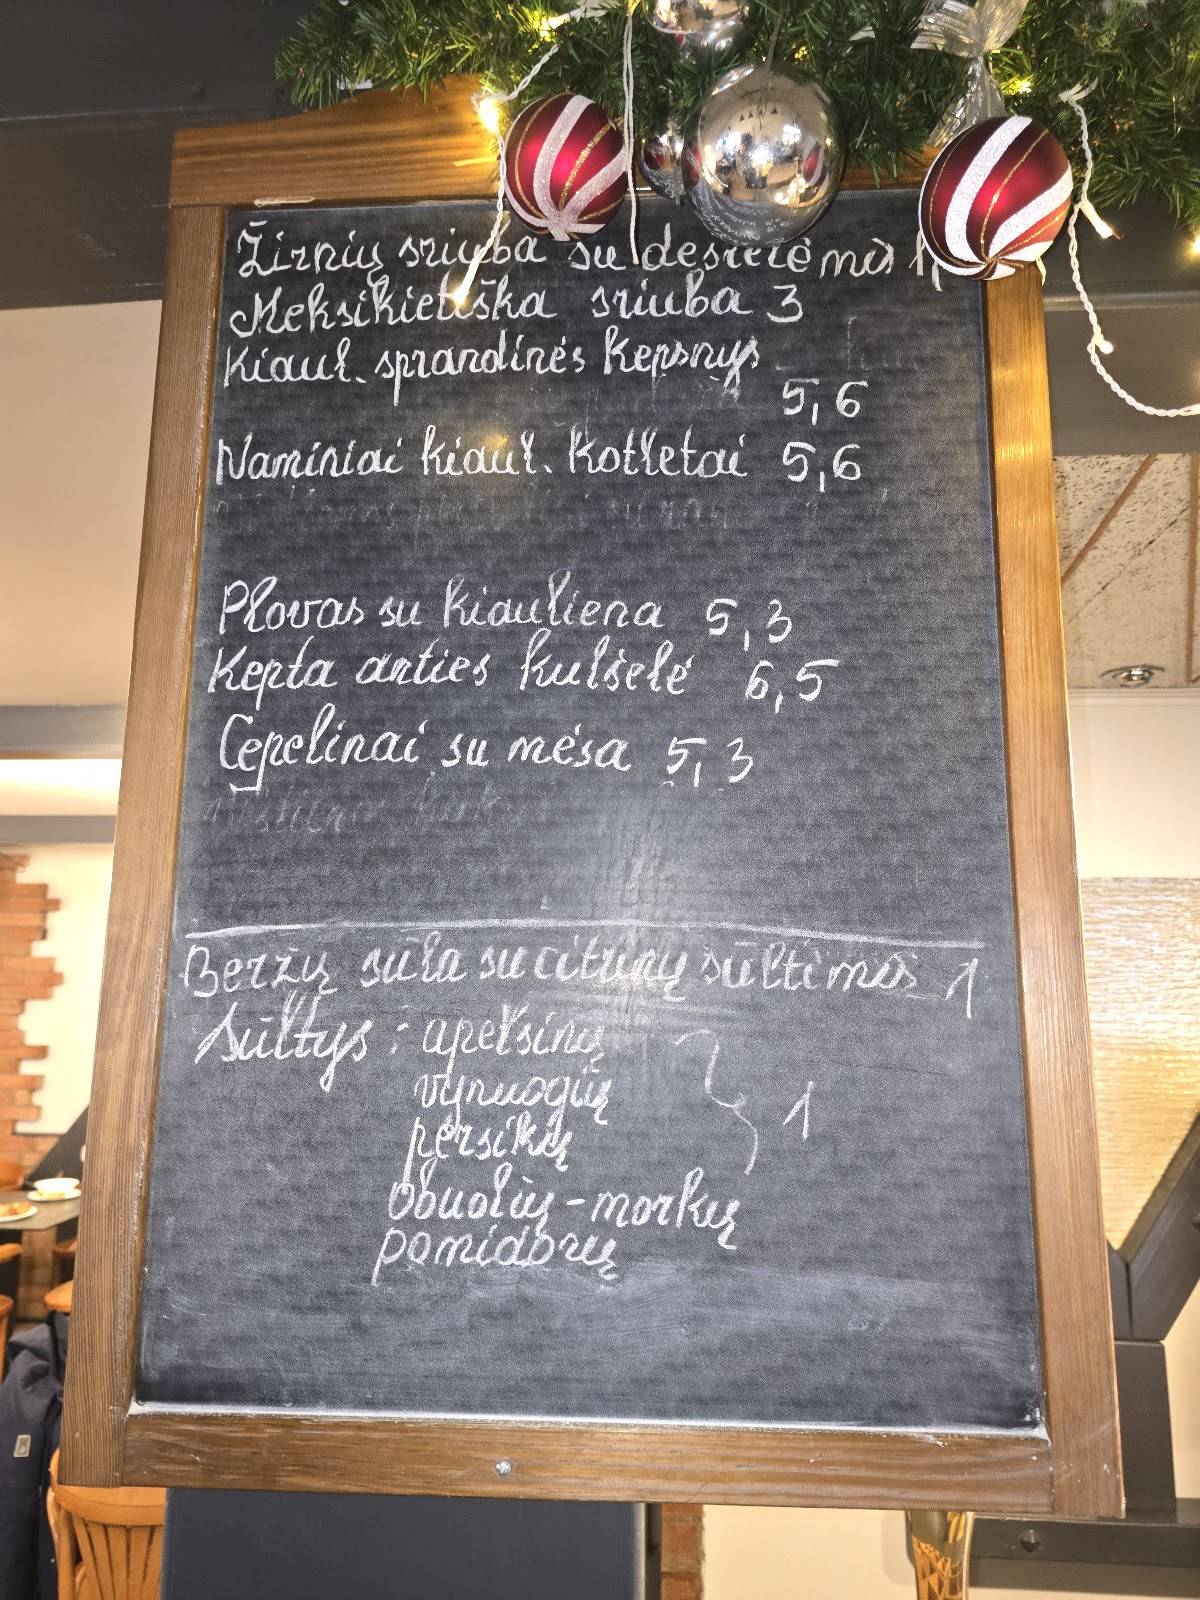 Žirnių sriuba su dešrelėmis 1,
Meksikietiška sriuba 3
Kiaul. sprandinės kepsnys
5,6
Naminiai kiaul. kotletai 5,6
Plovas su kiauliena 5,3
Kepta anties kulšelė 6,5
Cepelinai su mėsa 5,3
Beržų sula su citrinų sultimis 1
Sultys: apelsinų
vynuogių
persikų
1
obuolių-morkų
pomidorų